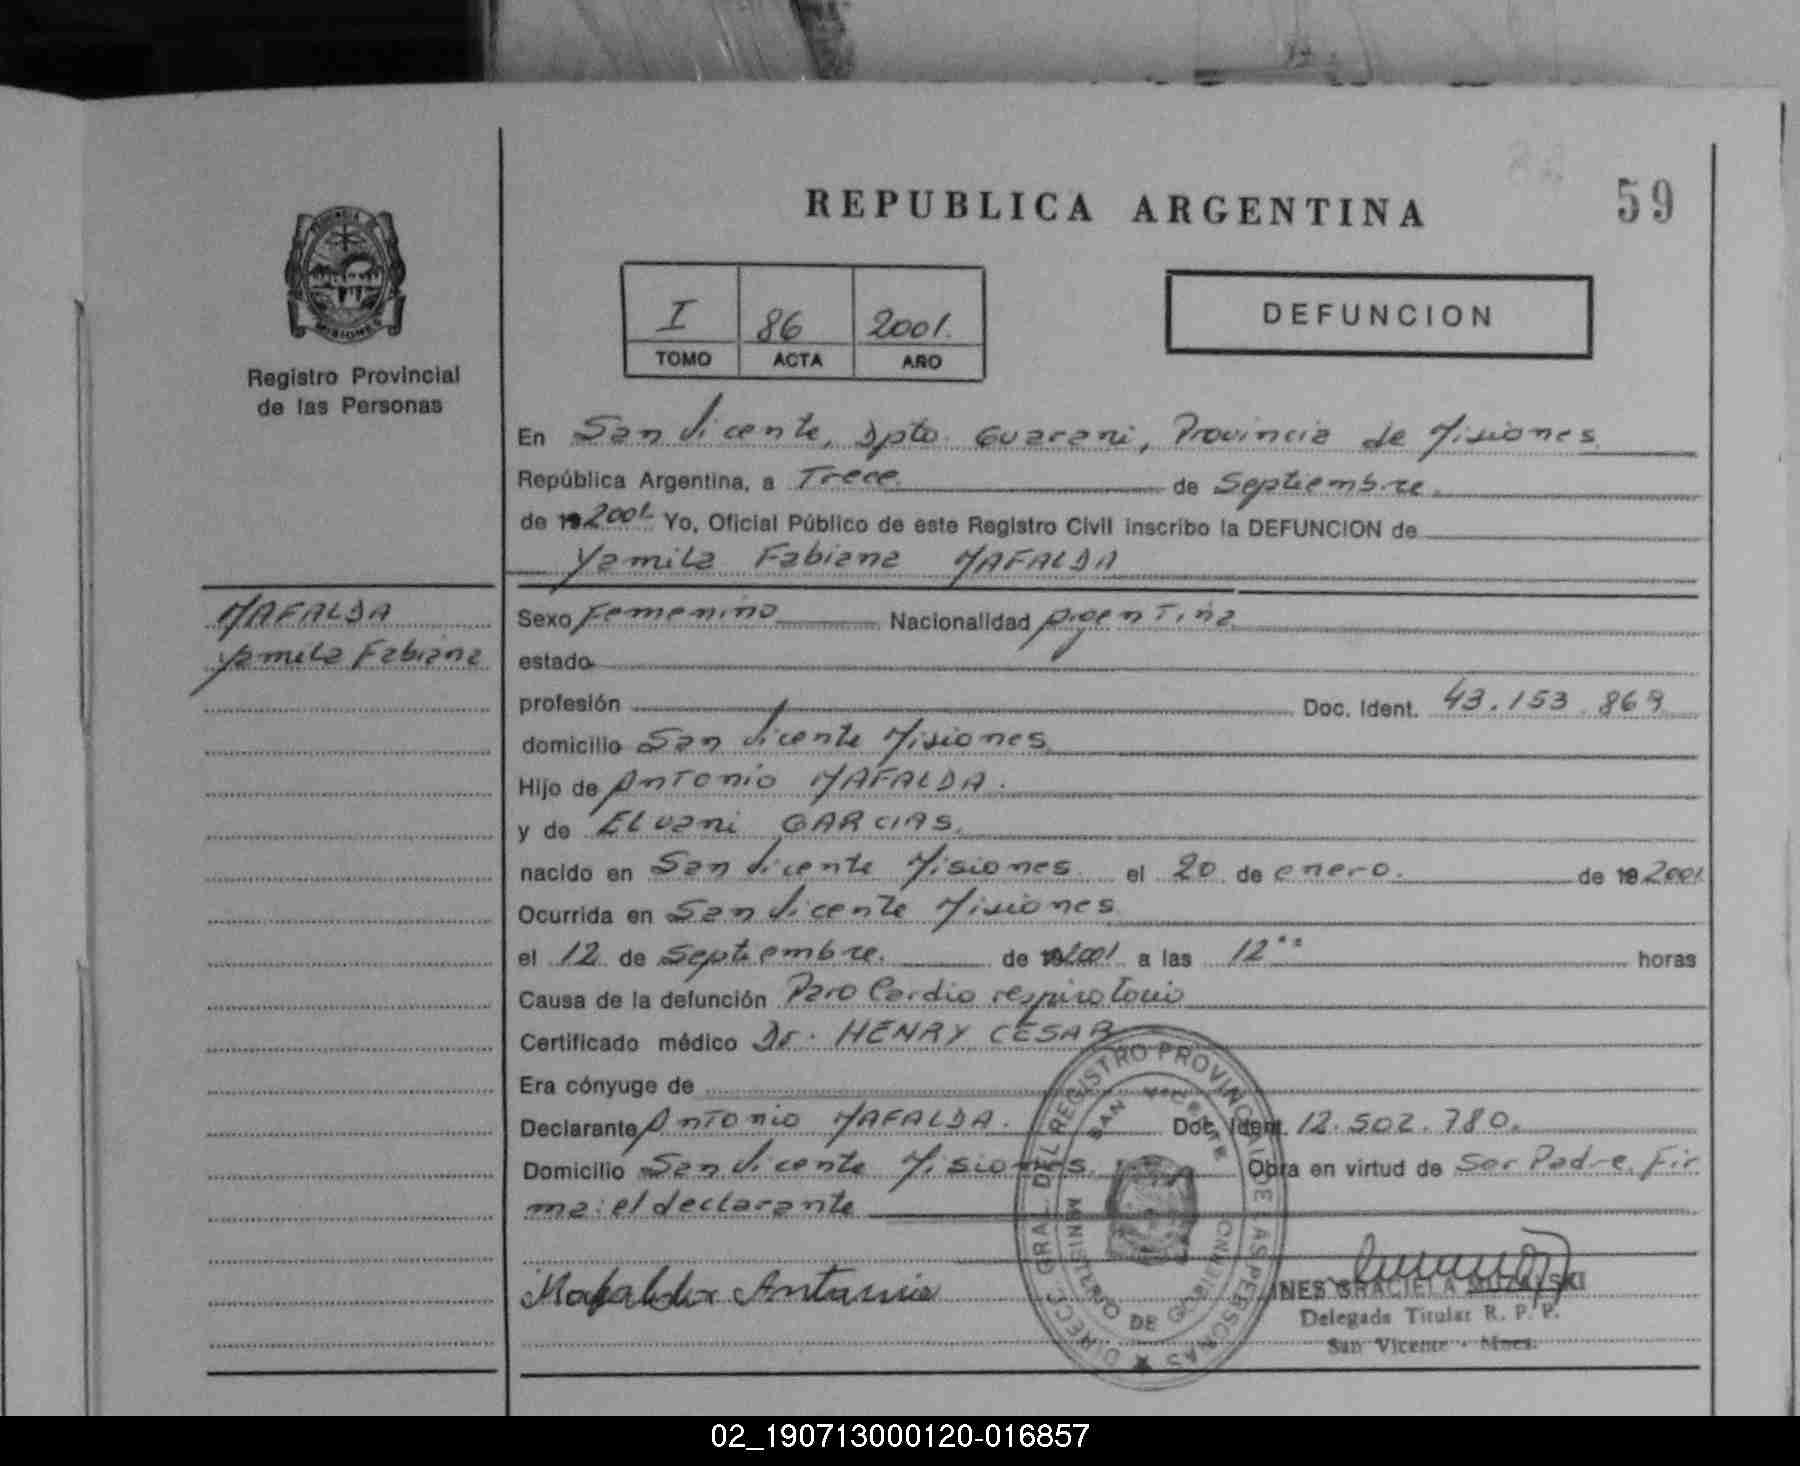 REPUBLICA ARGENTINA
59
I 86 2001.
TOMO ACTA AÑO
DEFUNCION
MISIONES
Registro Provincial
de las Personas
En San Vicente, Dpto. Guarani, Provincia de Misiones
República Argentina, a Trece. de Septiembre.
de 19 2001. Yo, Oficial Público de este Registro Civil inscribo la DEFUNCION de
Yamila Fabiana MAFALDA
MAFALDA
Yamila Fabiana
Sexo Femenino Nacionalidad Argentina
estado
profesión Doc. Ident. 43.153.869
domicilio San Vicente Misiones
Hijo de Antonio MAFALDA.
y de Elvani GARCIAS.
nacido en San Vicente Misiones el 20 de enero. de 19 2001
Ocurrida en San Vicente Misiones
el 12 de Septiembre. de 19 2001 a las 12°° horas
Causa de la defunción Paro Cardio respiratorio
Certificado médico Dr. HENRY CESAR
Era cónyuge de
Declarante Antonio MAFALDA. Doc. Ident. 12.502.780.
Domicilio San Vicente Misiones. Obra en virtud de Ser Padre. Fir
ma: el declarante
Mafalda Antonio
DIRECC. GRAL. DEL REGISTRO PROVINCIAL DE LAS PERSONAS
SAN VICENTE
MINISTERIO DE GOBIERNO
INES GRACIELA MUZALSKI
Delegada Titular R. P. P.
San Vicente - Mnes.
02_190713000120-016857